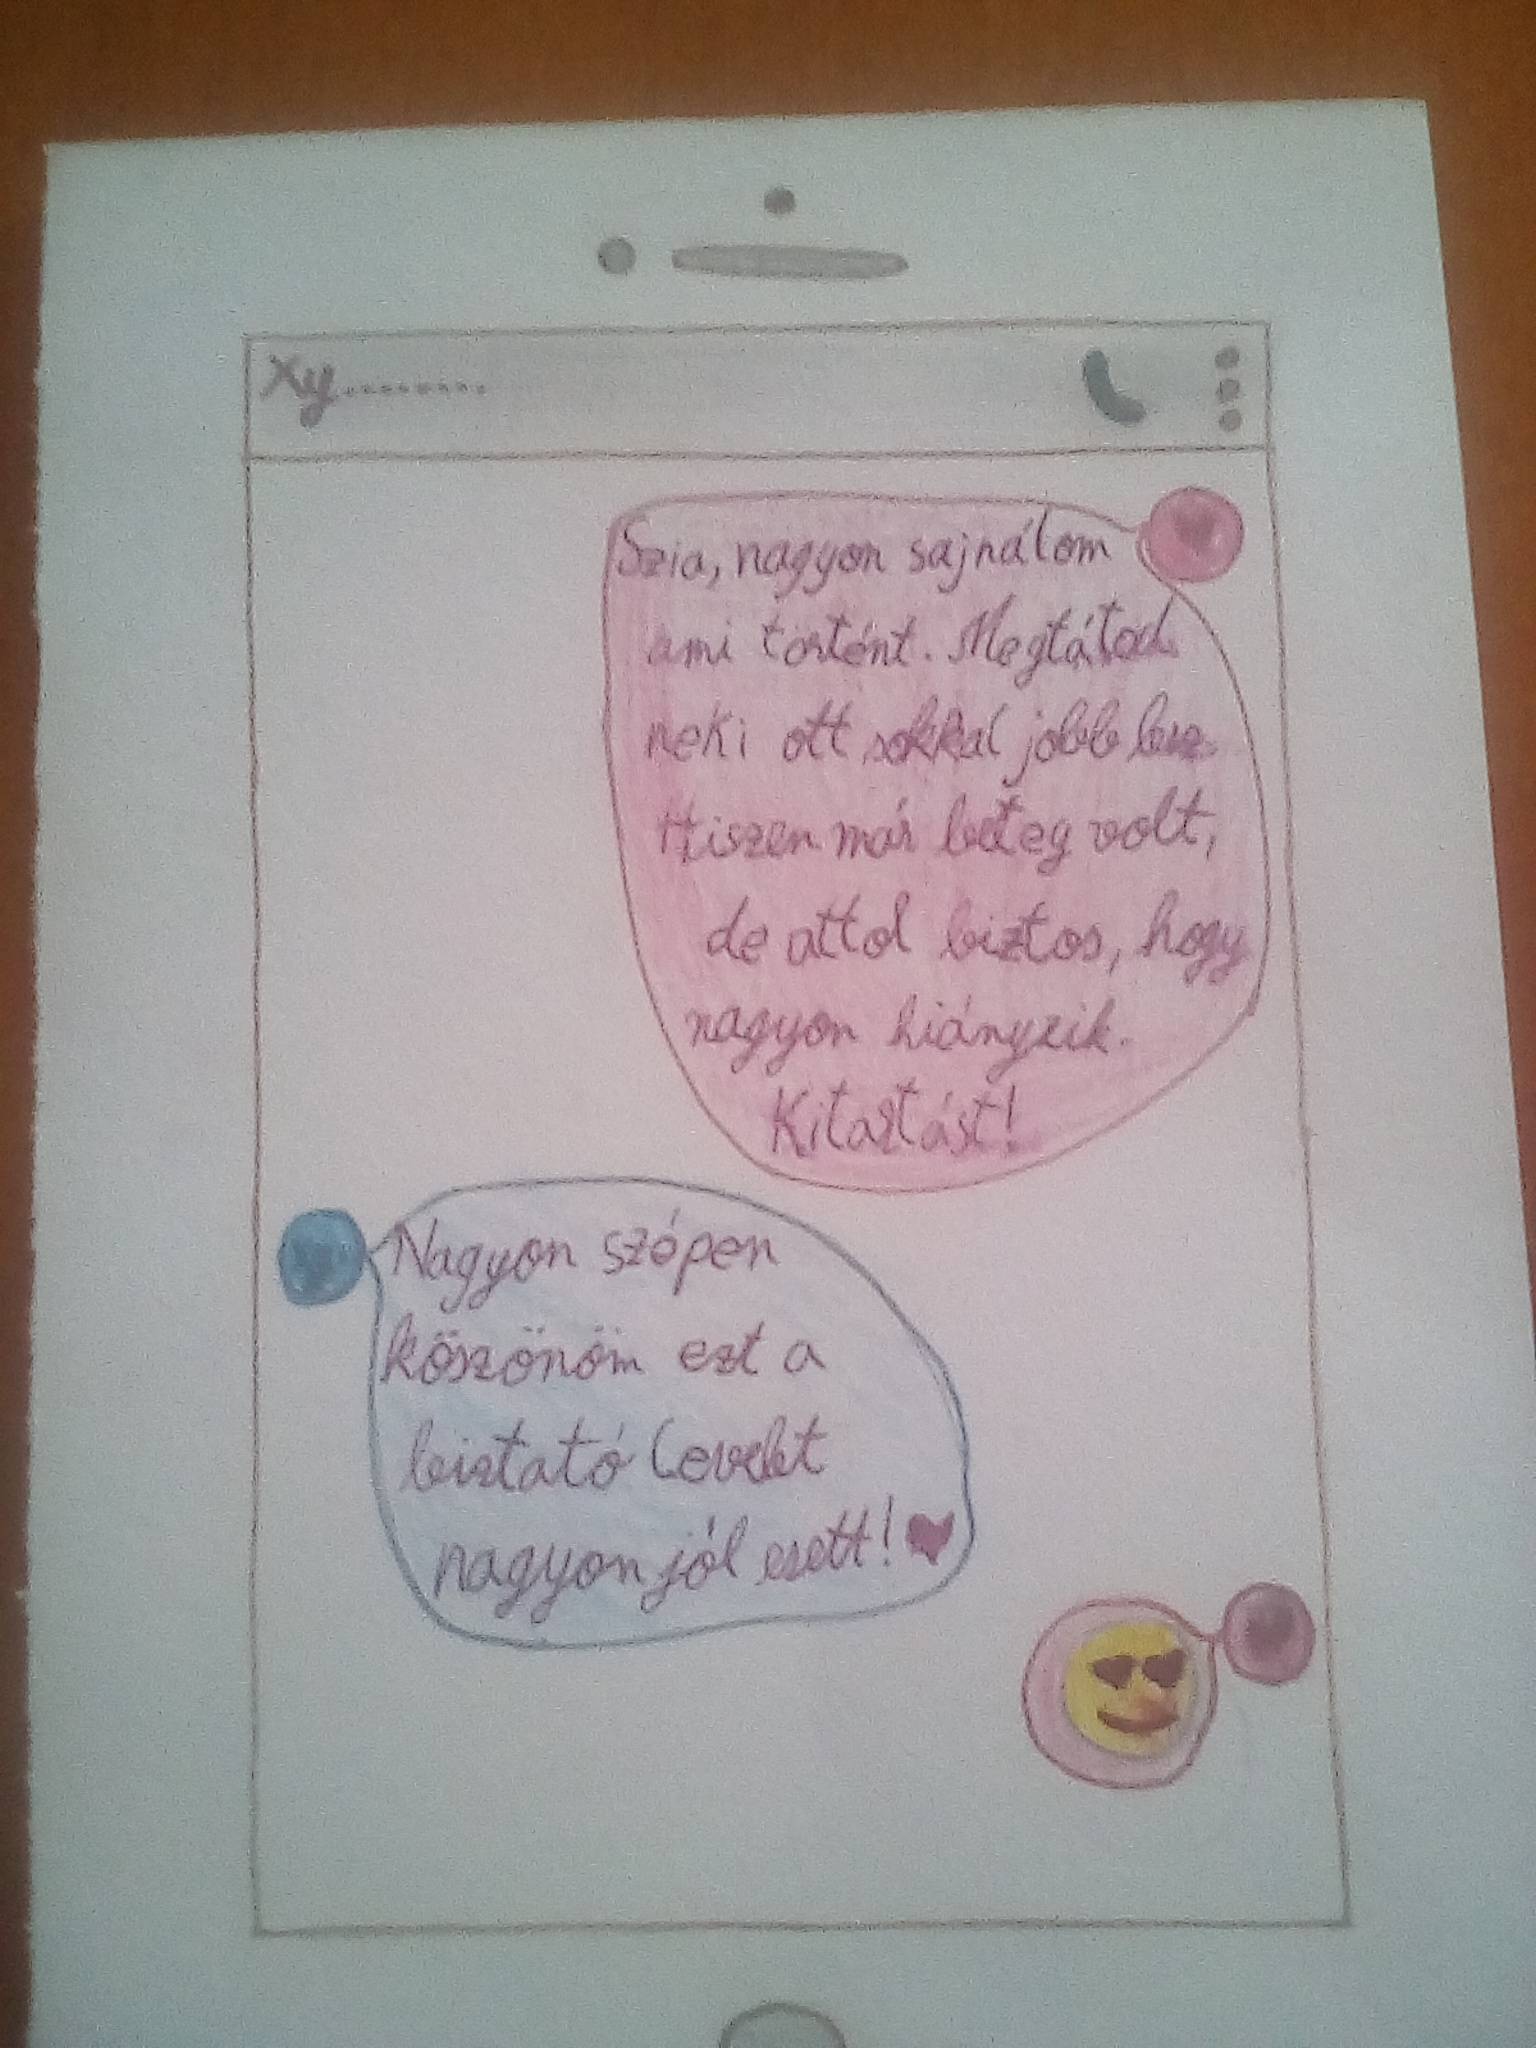 Xy.........
Szia, nagyon sajnálom
ami történt. Meglátod
neki ott sokkal jobb lesz.
Hiszen már beteg volt,
de attol biztos, hogy
nagyon hiányzik.
Kitartást!
Nagyon szépen
köszönöm ezt a
biztató levelet
nagyon jól esett!